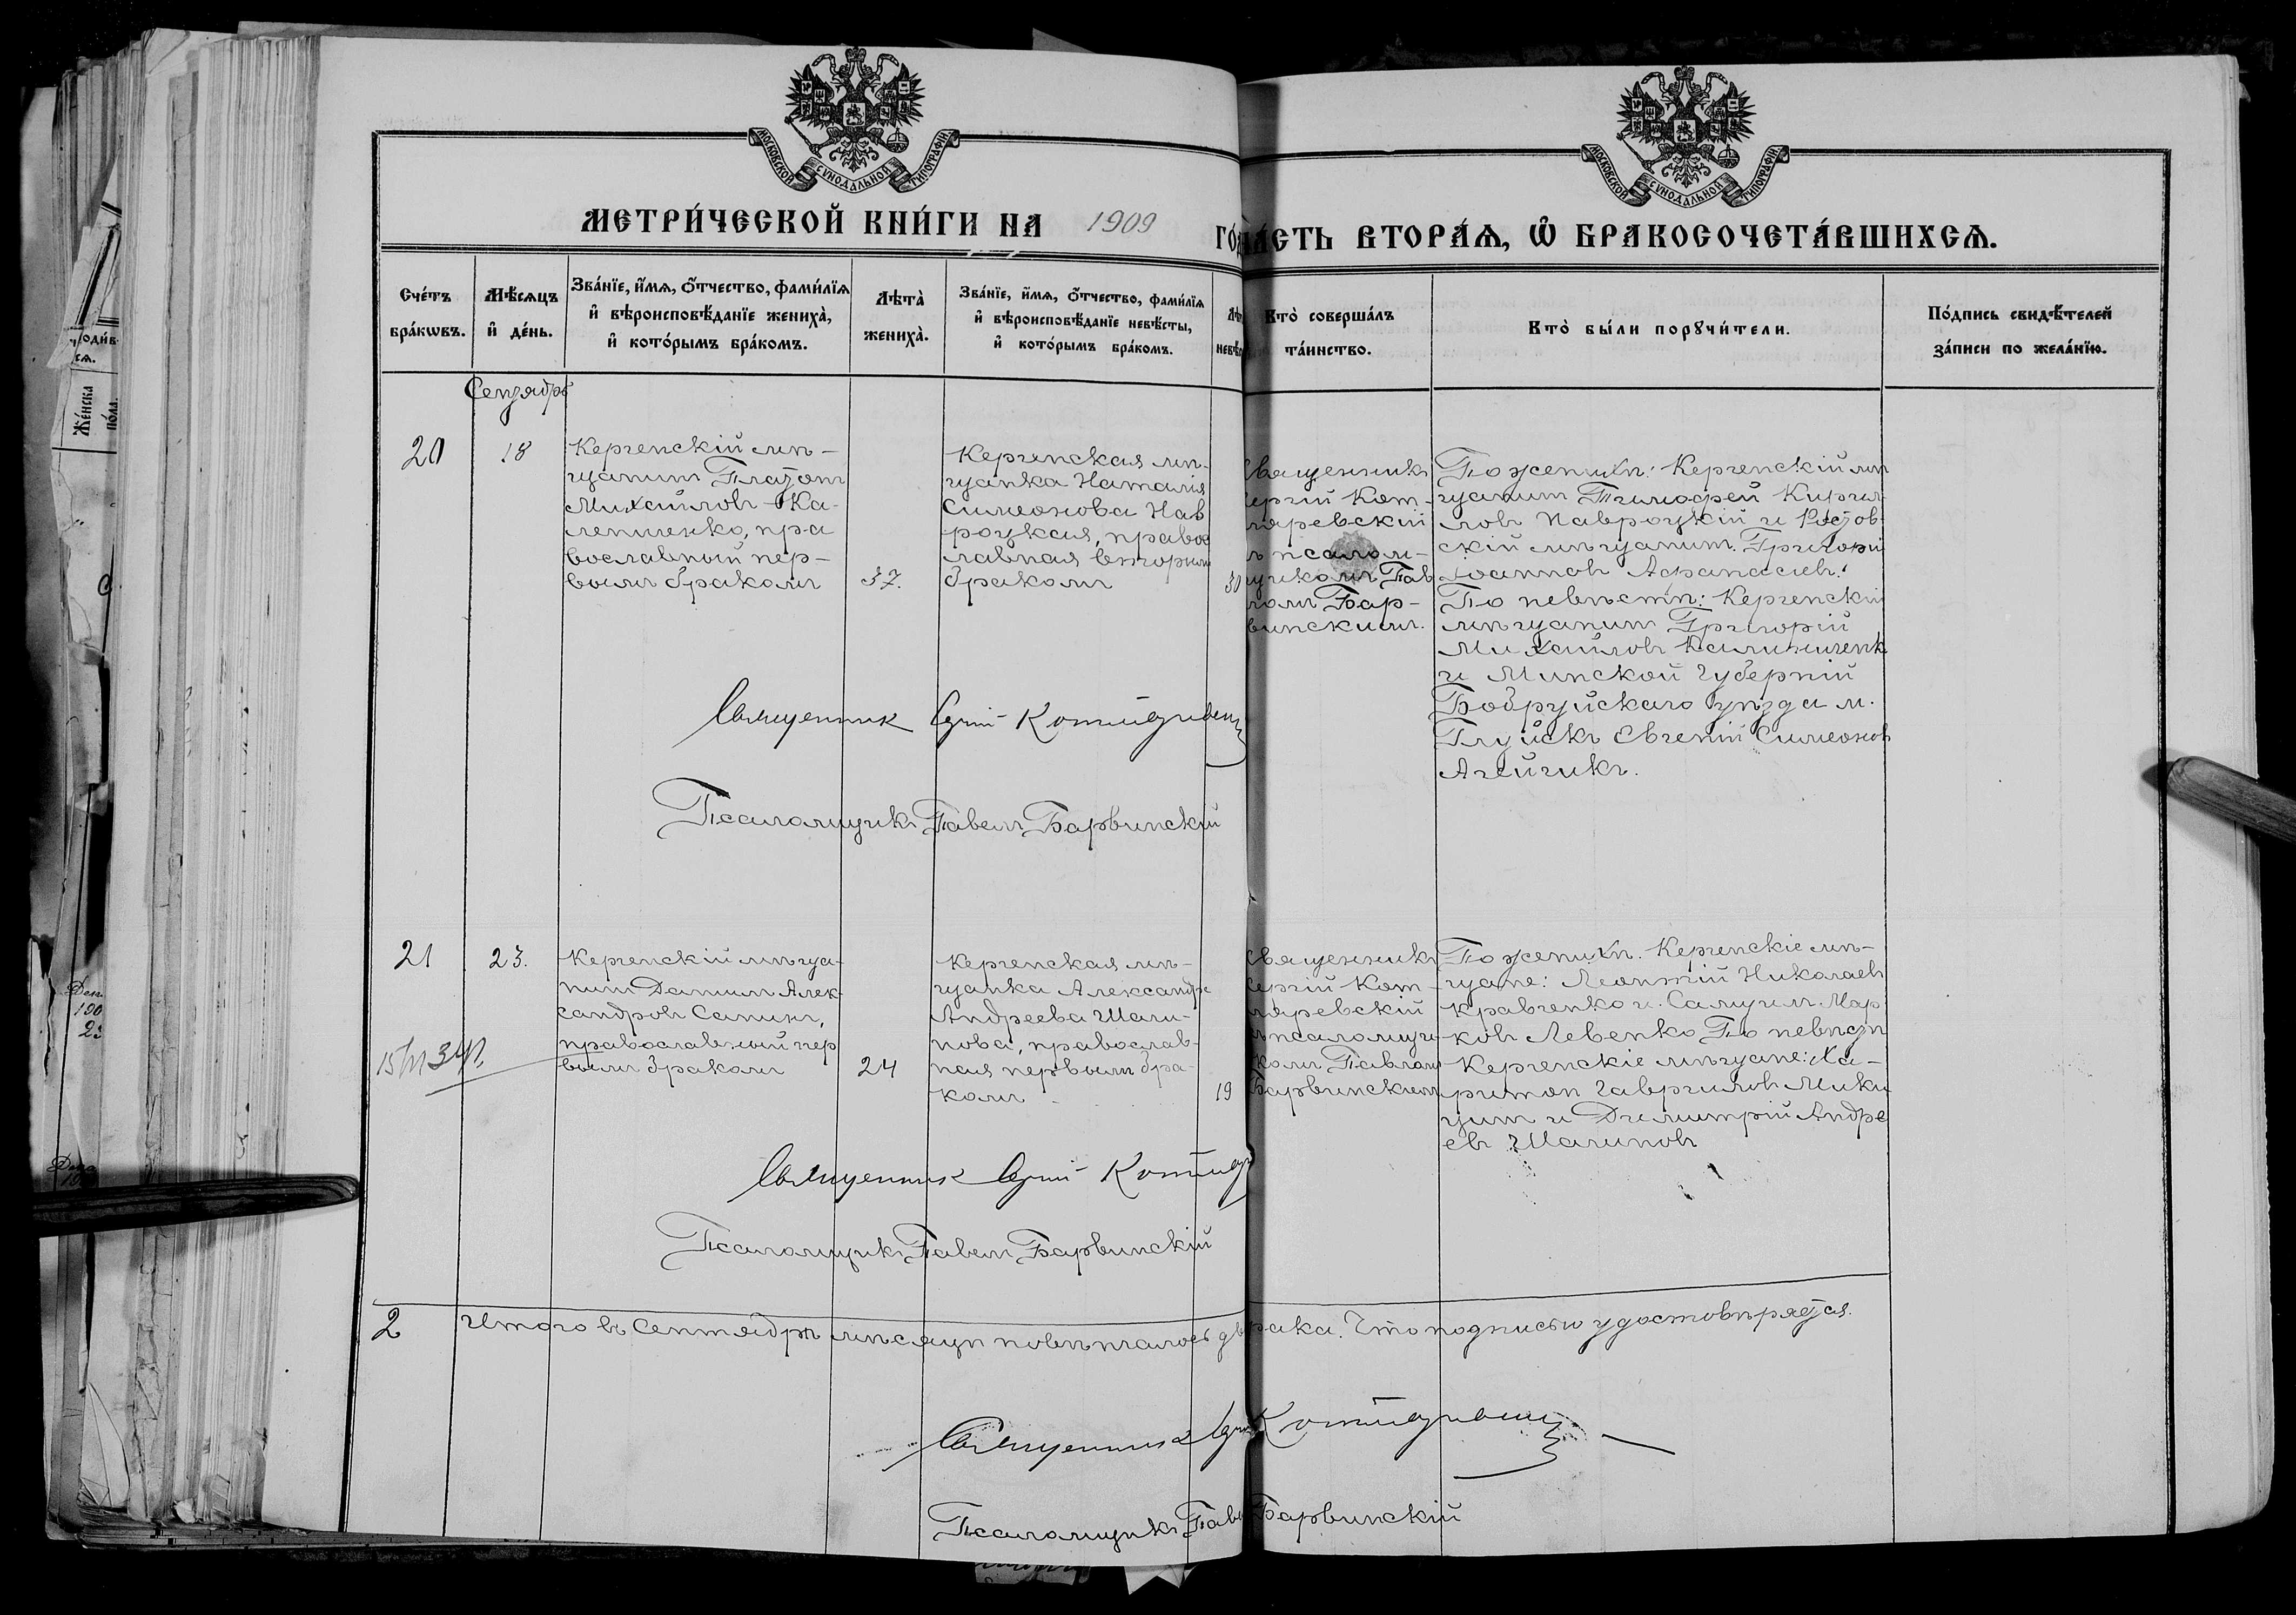 МОСКОВСКОЙ СѴНОДАЛЬНОЙ ТИПОГРАФІИ
МОСКОВСКОЙ СѴНОДАЛЬНОЙ ТИПОГРАФІИ
МЕТРИ́ЧЕСКОЙ КНИ́ГИ НА 1909 ГО́
ЧА́СТЬ ВТОРА́Ѧ, Ѡ҆ БРАКОСОЧЕТА́ВШИХСѦ.
Сче́тъ бра́кѡвъ.
Мѣ́сѧцъ и҆ де́нь.
Зва́нїе, и҆́мѧ, ѻ҆́тчество, фами́лїѧ
и҆ вѣроисповѣ́данїе жениха̀,
и҆ кото́рымъ бра́комъ.
Лѣта̀ жениха̀.
Зва́нїе, и҆́мѧ, ѻ҆́тчество, фами́лїѧ
и҆ вѣроисповѣ́данїе невѣ́сты,
и҆ кото́рымъ бра́комъ.
Кто̀ соверша́лъ
та́инство.
Кто̀ бы́ли порꙋчи́тели.
По́дпись свидѣ́телей
за́писи по жела́нїю.
Сентябрь
20
18
Керченскій мѣ-
щанинъ Платонъ
Михайловъ Ка-
лениченко, пра
вославный пер-
вымъ бракомъ
37.
Керченская мѣ-
щанка Наталія
Симеонова Нав
роцкая, правос
лавная вторымъ
бракомъ
30
Священникъ
Сергій Кот-
ляревскій
съ псалом-
щикомъ Пав
ломъ Бар-
винскимъ.
По женихѣ: Керченскій мѣ
щанинъ Тимофей Кирил
ловъ Навроцкій и Ростов
скій мѣщанинъ Григорій
Іоанновъ Афанасьевъ.
По невѣстѣ: Керченскій
мѣщанинъ Григорій
Михайловъ Калиниченк
и Минской Губерніи
Бобруйскаго уѣзда м.
Глускъ Евгеній Симеоновъ
Агейчикъ.
Священник Сергій Котляревскій
Псаломщикъ Павелъ Барвинскій
21
23.
Керченскій мѣща-
нинъ Даніилъ Алек-
сандровъ Сапинъ,
православный пер
вымъ бракомъ
24
Керченская мѣ-
щанка Александра
Андреева Шали-
нова, православ-
ная первымъ бра-
комъ
19
Священникъ
Сергій Кот-
ляревскій
съ псаломщи-
комъ Павломъ
Барвинскимъ
По женихѣ. Керченскіе мѣ-
щане: Леонтій Николаевъ
Кравченко и Самуилъ Мар
ковъ Левенко По невѣстѣ
Керченскіе мѣщане: Ха-
ритон Гавриловъ Мики
цин и Димитрій Андре
евъ Шалиновъ
Священник Сергій Котляр
Псаломщикъ Павелъ Барвинскій
2
Итого въ Сентябрѣ мѣсяцѣ повѣнчалось два брака. Что подписью удостовѣряется.
Священник Сергій Котляревскій
Псаломщикъ Павелъ Барвинскій